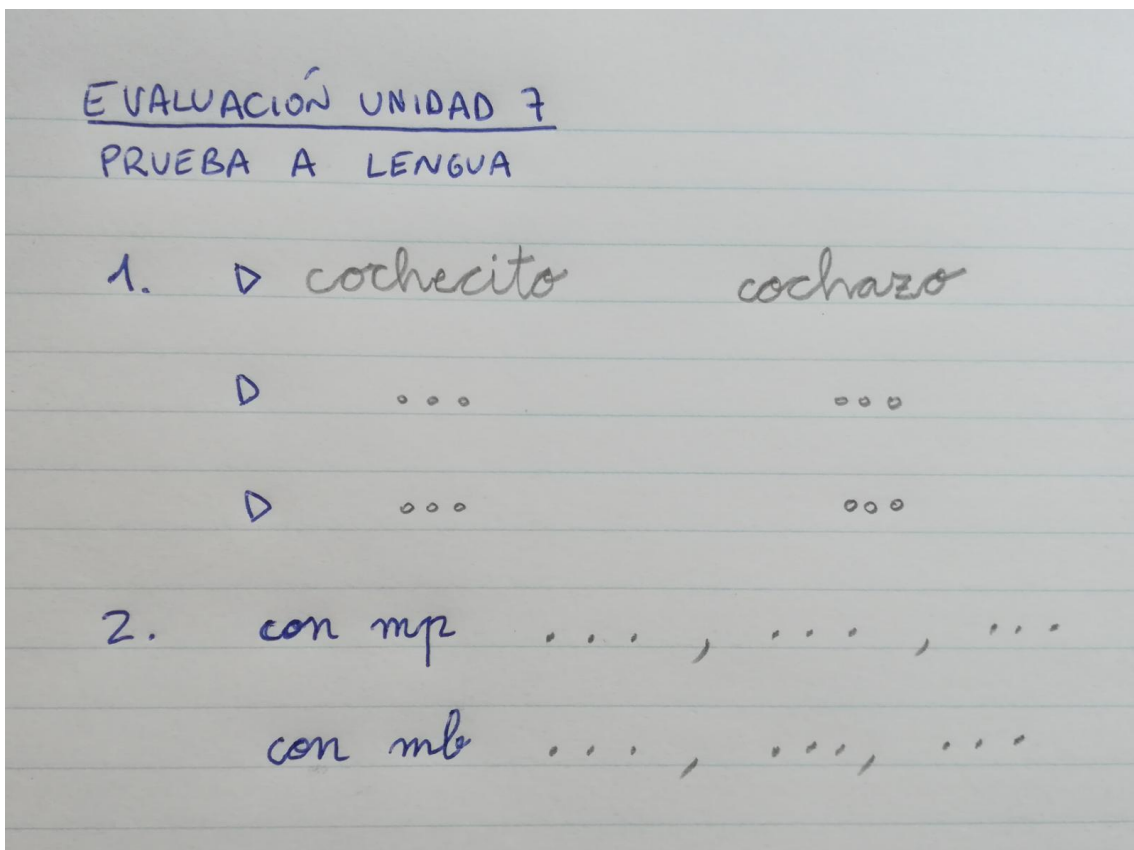 EVALUACIÓN UNIDAD 7
PRUEBA A LENGUA
1. ▷ cochecito cochazo
▷ ... ...
▷ ... ...
2. con mp ..., ..., ...
con mb ..., ..., ...